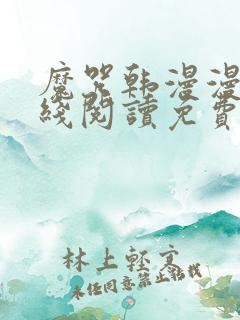 魔咒韩漫漫
线阅读免费
林上轻言
未经同意禁止转载